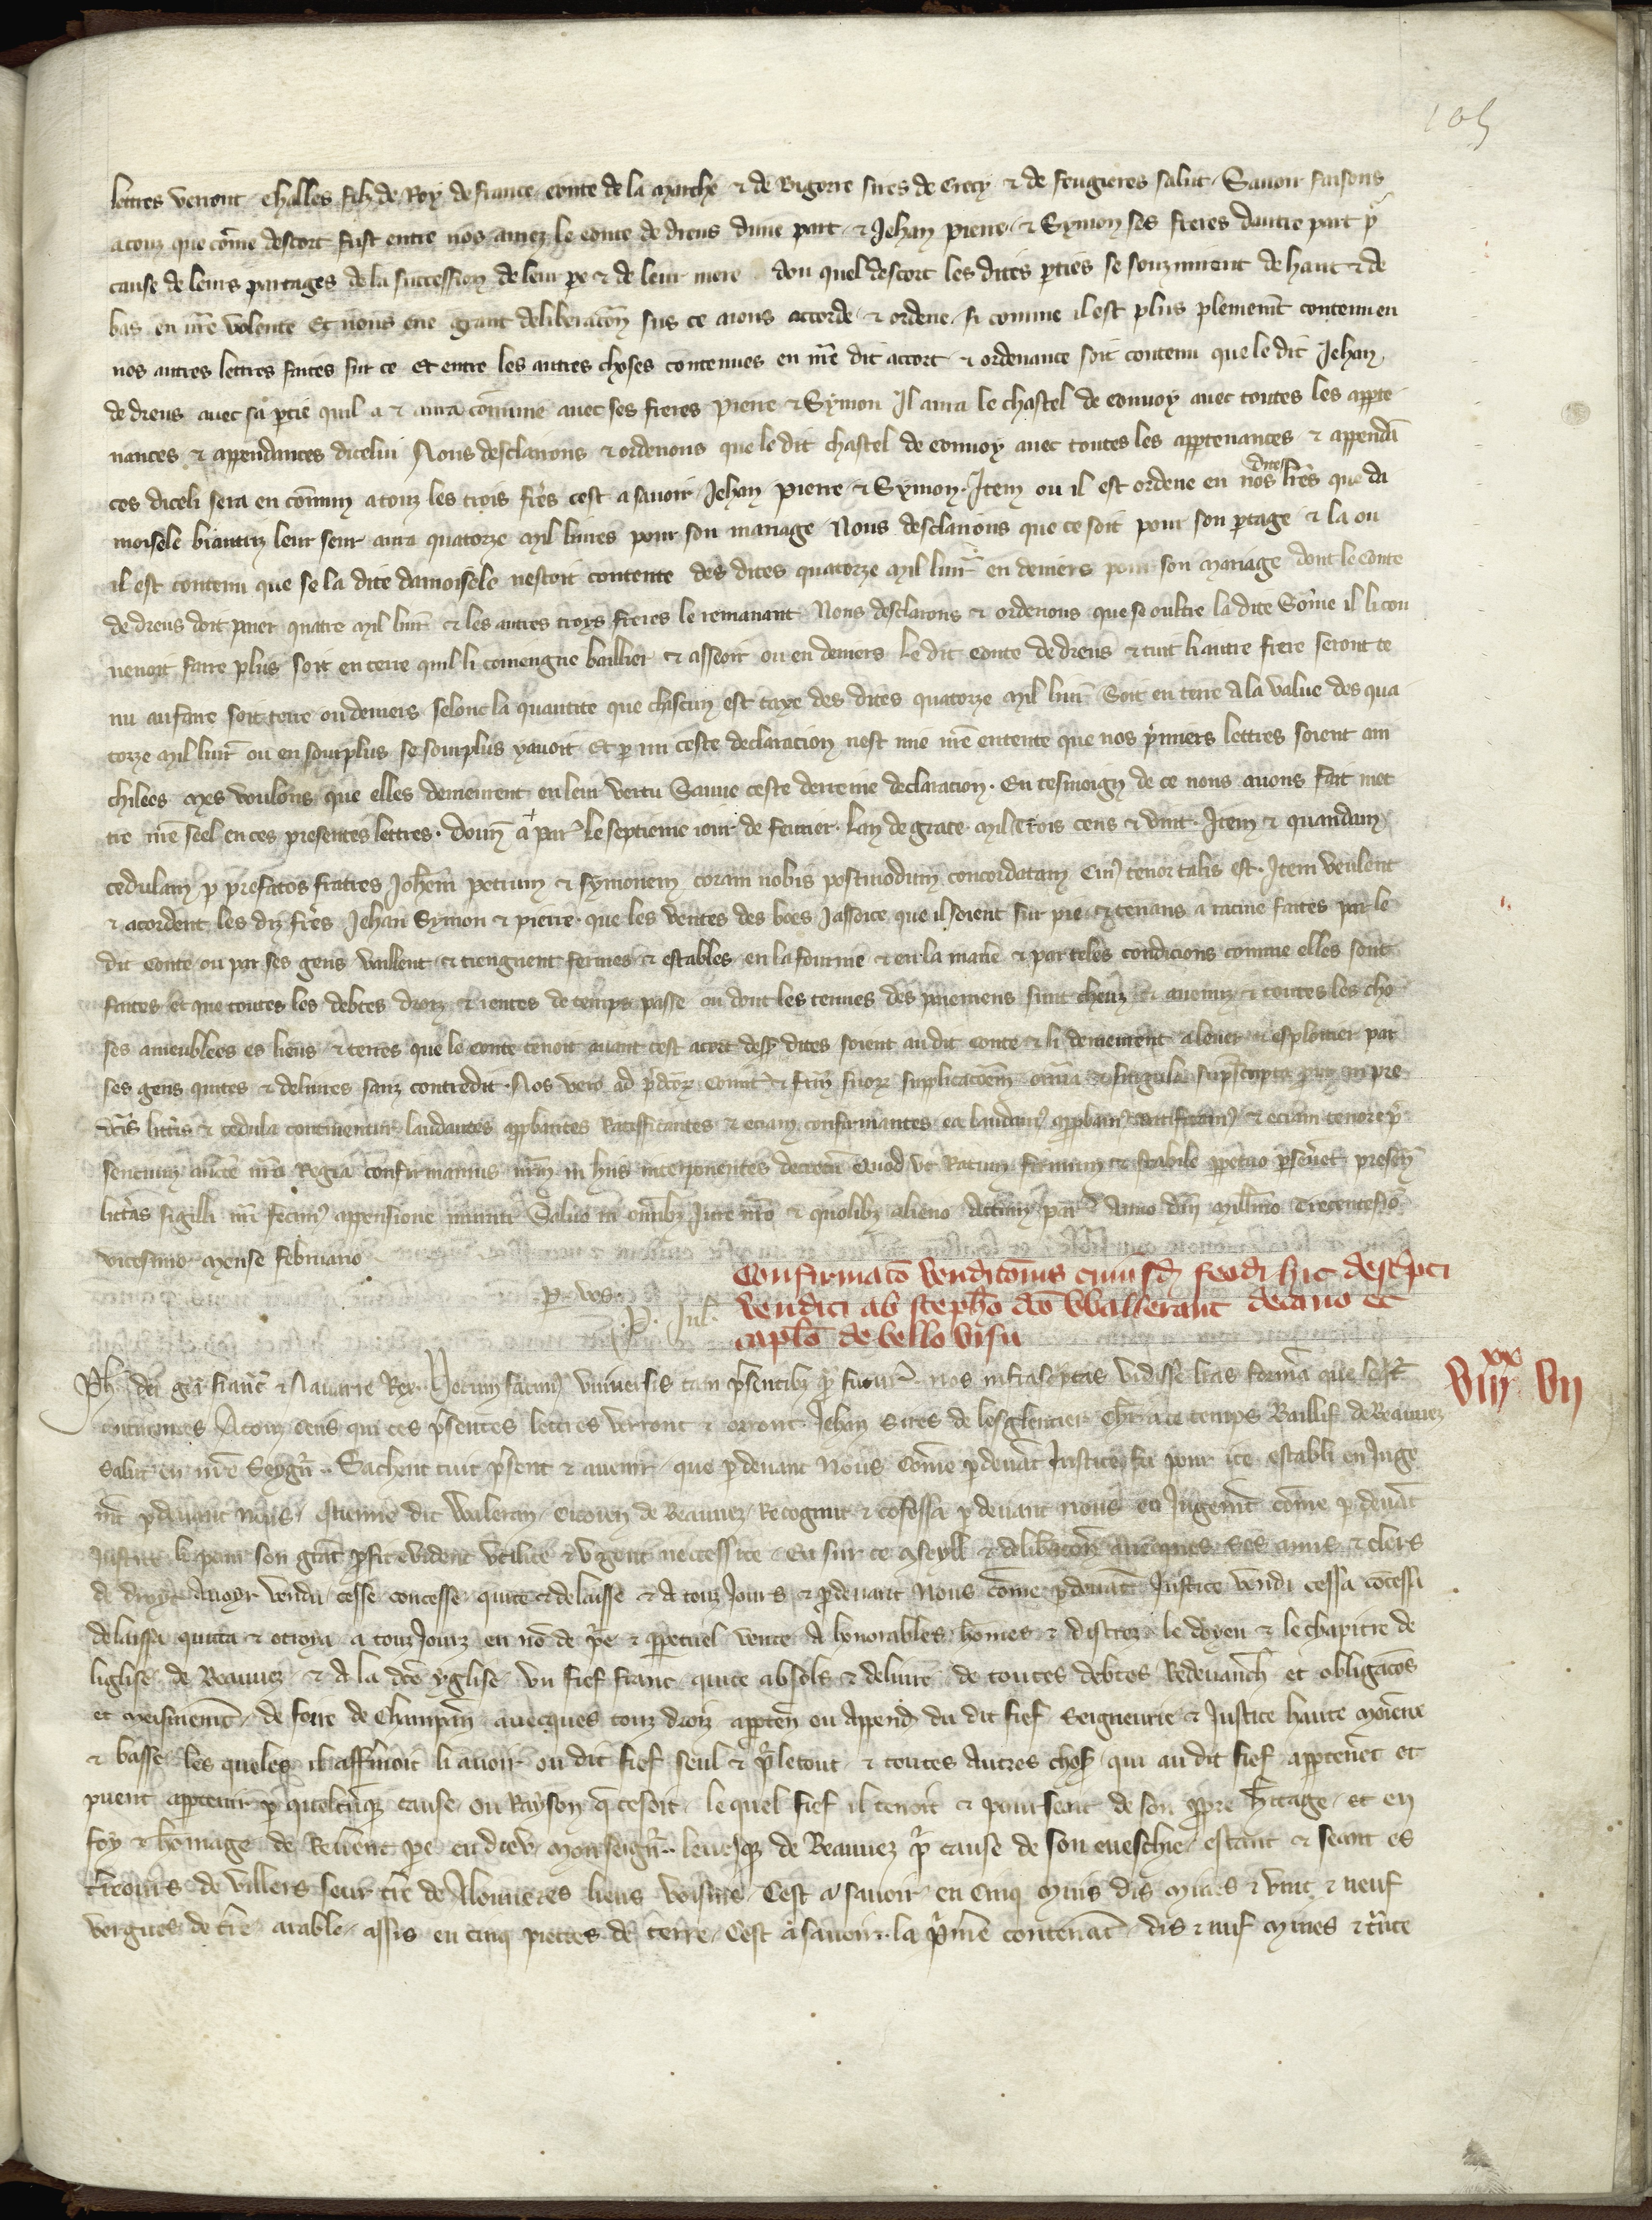 105
lettres verront Challes filz de Roy de france conte de la marche & de Bigorre sires de Crecy & de feugieres salut Savoir faisons
a touz que cōme descort fust entre nos amez le conte de dreus dune part & Jehan pierre & Symon ses freres dautre part pr
cause de leurs partages de la succession de leur pe & de leur mere dou quel descort les dites pties se souzmirent de haut & de
bas en nr̄e volente Et nous eue grant deliberacōn sus ce aions accorde & ordene si comme il est plus plenemt contenu en
nos autres lettres faites sur ce Et entre les autres choses contenues en nr̄e dit accort & ordenance soit contenu que le dit Jehan
de dreus avec sa ptie quil a & aura cōmune avec ses freres pierre & Symon Il aura le chastel de convoy avec toutes les appte
nances & appendances dicelui Nous desclarons & ordenons que le dit chastel de convoy avec toutes les apptenances & appendā
ces diceli sera en cōmun a touz les trois frēs cest a savoir Jehan pierre & Symon. Item ou il est ordene en nos dites lrēs que da
moisele biautriz leur seur aura quatorze mil livres pour son mariage Nous desclarions que ce soit pour son ptage & la ou
il est contenu que se la dite damoisele nestoit contente des dites quatorze mil livr̄ en deniers pour son mariage dont le conte
de dreus doit paier quatre mil livr̄ & les autres troys freres le remanant Nous desclarons & ordenons que se oultre la dite Sōme il li con
venoit faire plus soit en terre quil li conviengne baillier & asseoir ou en deniers le dit conte de dreus & tuit li autre frere seront te
nu au faire soit terre ou deniers selonc la quantite que chascun est taxe des dites quatorze mil livr̄ Soit en terre a la value des qua
torze mil livr̄ ou en sourplus se sourplus yavoit Et p mi ceste declaracion nest mie nr̄e entente que nos pmiers lettres soient ain
chilees mes voulons que elles demeurent en leur vertu Sauve ceste derreine declaracion. En tesmoign de ce nous avons fait met
tre nr̄e seel en ces presentes lettres. Donn̄ a par̄ le septieme iour de fevrier. Lan de grace mil trois cens & vint. Item & quandam
cedulam p prefatos fratres Joh̄em petrum & symonem coram nobis postmodum concordatam Cui9 tenor talis est. Item veulent
& acordent les diz frēs Jehan Symon & pierre. que les ventes des bois Jassoice que il soient sur pie & tenans a racine faites par le
dit Conte ou par ses gens vaillent & tiengnent fermes & estables en la fourme & en la maniē & par teles condicions comme elles sont
faites et que toutes les debtes droiz & rentes de temps passe ou dont les termes des paiemens sunt cheuz & avenuz & toutes les cho
ses ameublees es lieus & terres que le conte tenoit avant cest acort dess9 dites soient au dit conte & li demeurent a lever & esploitier par
ses gens quites & delivres sanz contredit. Nos vero ad pdc̄or Comit & frm̄ suor supplicacōem om̄ia & singula supscripta put in pre
dc̄is litt̄is & cedula continentur laudantes approbantes Ratifficantes & eciam confirmantes ea laudam9 approbam9 ratificam9 & eciam tenore p
sencium auctē nrā Regiā confirmamus nrm̄ in hiis interponentes decretū Quod ut Ratum firmum & stabile ppetuo pseveret presen
litt̄as sigilli nrī fecim9 appensione muniri Salvo in om̄ibz Jure nrō & quolibz alieno Actum par̄ Anno dn̄i Mill̄mo Trecentesīo
vicesimo mense februario
p vos
P. Jul.
Confirmatō venditōnis cuiusd̄ feodi hic descpti
venditi ab steph̄o dc̄o Walleranc decano et
capl̄o de bello visu
VIIIxx VII
Ph̄ dei grā franc̄ & Navarre Rex Notum facim9 universis tam psentibz q̄ futur̄ nos infrascptas vidisse lrās formā que seqr̄
continentes A touz ceus qui ces psentes lettres verront & orront Jehan sires de lesglentier Chlr̄ a ce temps Baillif de Beauvez
Salut en nr̄e Seygn̄r. Sachent tuit psent & avenir que pdevant Nous Cōme pdevāt Justice fu pour ice establi en Juge
mt̄ pdevant nous Estienne dit Waleran Citoien de Beauvez Recognut & cōfessa pdevant nous en Jugemt̄ cōme pdevāt
Justice li pour son grāt pfit evident utilite & urgent necessite Eu sur ce cseyll & delibacōn avecques Ses amis & clers
de droyt Avoyr vendu cesse concesse quite & delaisse & A touz Jours & pdevant Nous cōme pdevāt Justice vendi cessa cōcessa
delaissa quita & otroia a touz Jourz en nō de pe & ppetuel vente A honorables hōmes & discrez le doyen & le chapitre de
liglise de Beauvez & A la dcē yglise Un fief franc quite absols & delivre de toutes debtes Redevanch̄ et obligacōs
et meismemt̄ de foire de Champan̄ avecques touz droiz appten̄ ou append̄ du dit fief Seigneurie & Justice haute moiēne
& basse les queles il affmoit li avoir ou dit fief seul & pr le tout & toutes Autres chos̄ qui au dit fief apptenēt et
puent apptenir p quelcunq̄ cause ou Rayson q̄ ce soit le quel fief il tenoit & poursseant de son ppre h̄itage et en
foy & homage de Revent pe en dieu Monseign̄r levesq̄ de Beauvez pr cause de son eveschie estant & seant es
tr̄itoirs de villers seur tr̄e de Monneres lieus voisins Cest a savoir en Cinq muis dis mines & vint & neuf
vergues de tr̄e arable assis en cinq pieces de terre Cest a savoir la pmiē contenāt dis & nuf mines & trēte